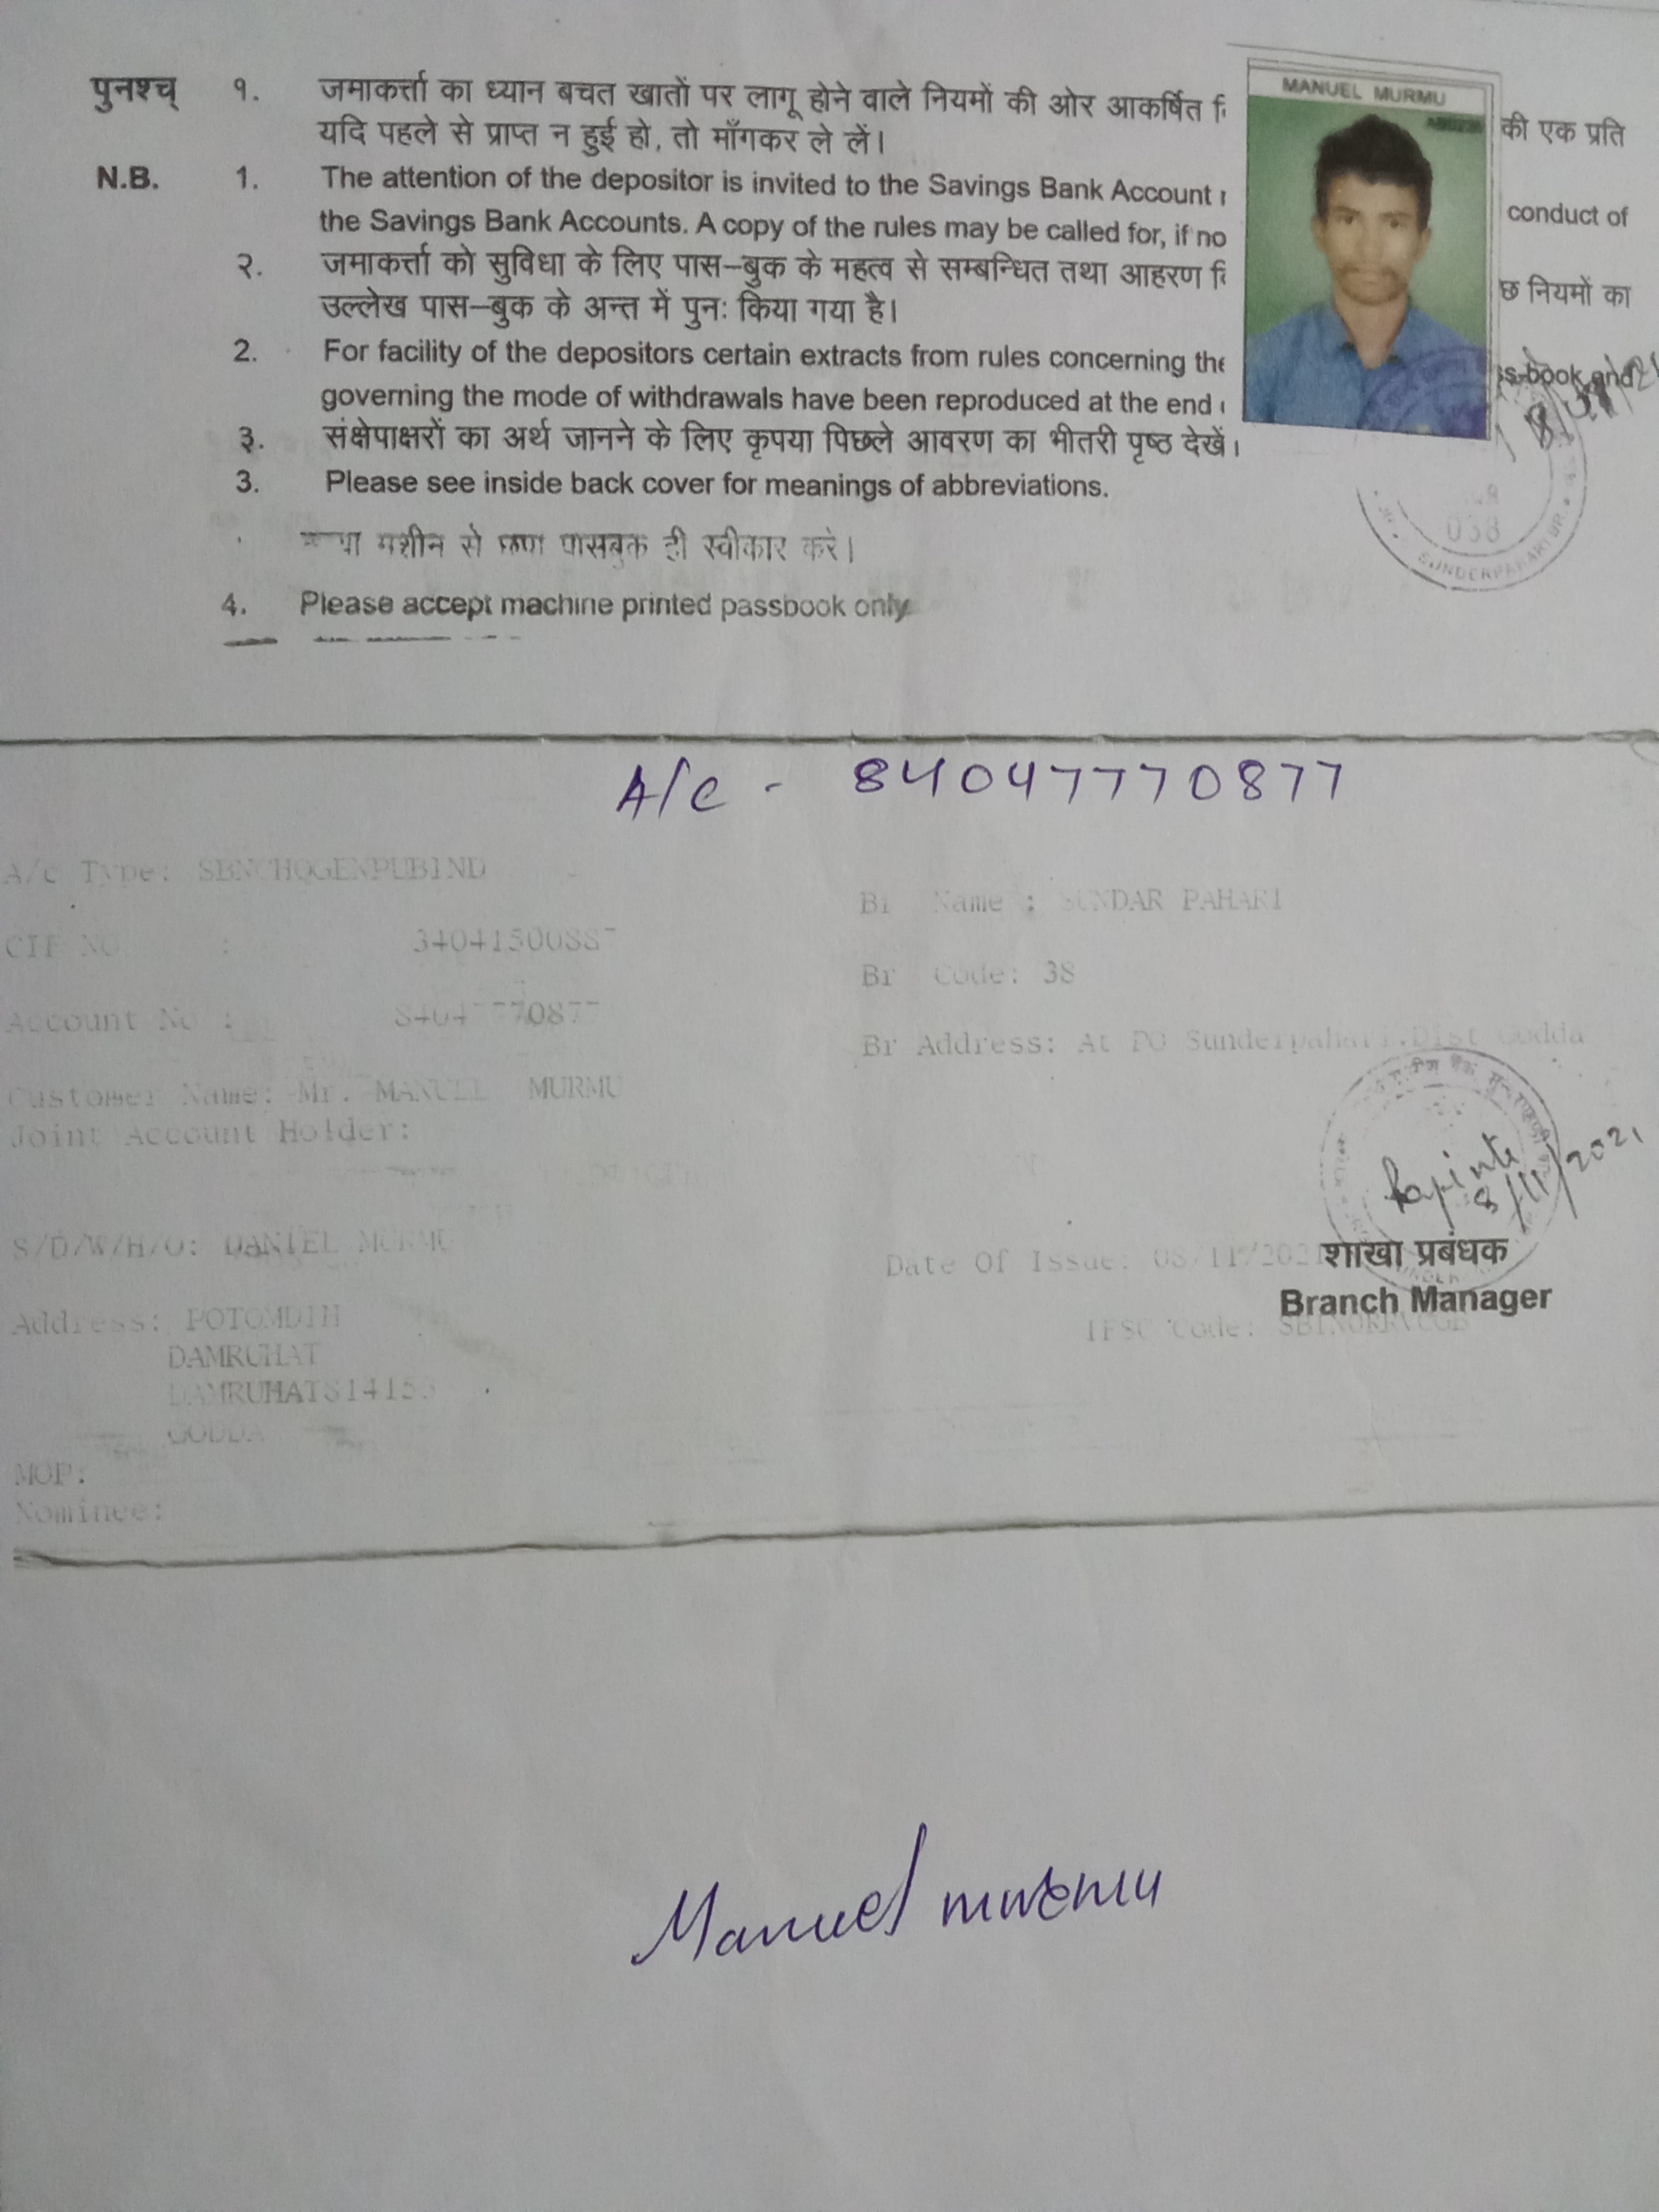 पुनश्च् १. जमाकर्त्ता का ध्यान बचत खातों पर लागू होने वाले नियमों की ओर आकर्षित
MANUEL MURMU
यदि पहले से प्राप्त न हुई हो, तो माँगकर ले लें। की एक प्रति
N.B. 1. The attention of the depositor is invited to the Savings Bank Account
the Savings Bank Accounts. A copy of the rules may be called for, if no conduct of
२. जमाकर्त्ता को सुविधा के लिए पास–बुक के महत्व से सम्बन्धित तथा आहरण
उल्लेख पास–बुक के अन्त में पुनः किया गया है। नियमों का
2. For facility of the depositors certain extracts from rules concerning the
governing the mode of withdrawals have been reproduced at the end
३. संक्षेपाक्षरों का अर्थ जानने के लिए कृपया पिछले आवरण का भीतरी पृष्ठ देखें।
3. Please see inside back cover for meanings of abbreviations.
मशीन से पासबुक ही स्वीकार करें।
038
SUNDERPAHARI BR
4. Please accept machine printed passbook only
A/C - 84047770877
A/c Type: SBNCHQGENPUBIND
Br Name : SUNDAR PAHARI
CIF NO :
Br Code: 38
Account No : 84047770877
Br Address: At PO Sunderpahari,Dist Godda
Customer Name: Mr. MANUEL MURMU
Joint Account Holder:
8/11/2021
S/D/W/H/O: DANIEL MURMU
Date Of Issue: 08/11/2021
शाखा प्रबंधक
Branch Manager
Address: POTOMDIH
IFSC Code:
DAMRUHAT
GODDA
MOP:
Nominee:
Manuel murmu